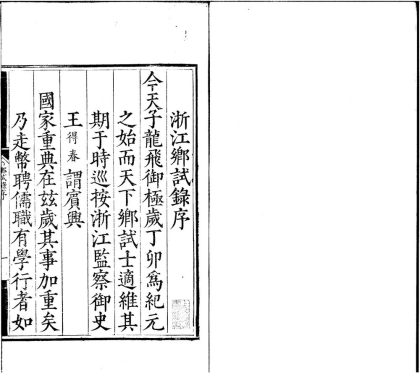 浙江鄉試錄序
今天子龍飛御極歲丁卯爲紀元
之始而天下鄉試士適維其
期于時巡按浙江監察御史
王得春謂賓興
國家重典在玆歲其事加重矣
乃走幣聘儒職有學行者如